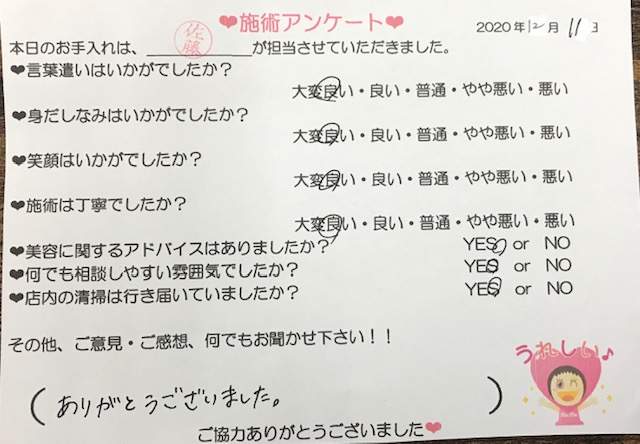 ❤施術アンケート❤
2020年12月11日
本日のお手入れは、佐藤が担当させていただきました。
❤言葉遣いはいかがでしたか？
大変良い・良い・普通・やや悪い・悪い
❤身だしなみはいかがでしたか？
大変良い・良い・普通・やや悪い・悪い
❤笑顔はいかがでしたか？
大変良い・良い・普通・やや悪い・悪い
❤施術は丁寧でしたか？
大変良い・良い・普通・やや悪い・悪い
❤美容に関するアドバイスはありましたか？ YES or NO
❤何でも相談しやすい雰囲気でしたか？ YES or NO
❤店内の清掃は行き届いていましたか？ YES or NO
その他、ご意見・ご感想、何でもお聞かせ下さい！！
うれしい♪
（ありがとうございました。）
ご協力ありがとうございました❤